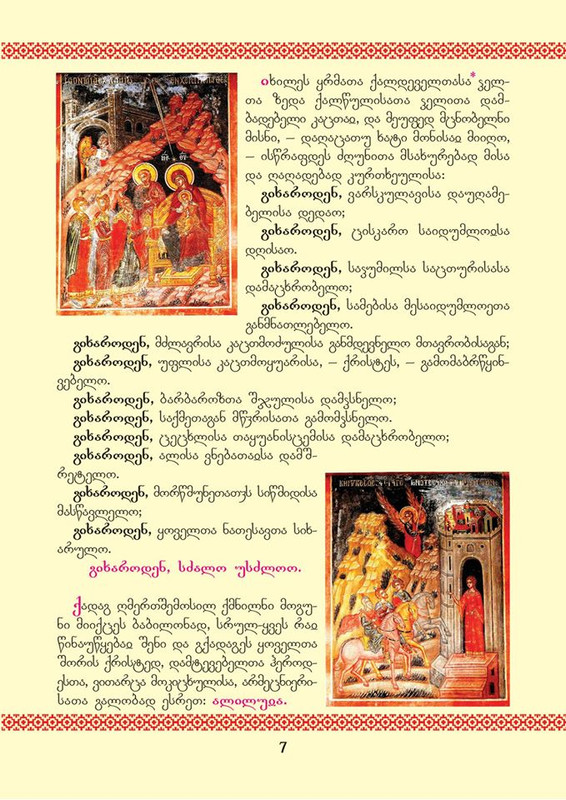 იხილეს ყრმათა ქალდეველთასა* ჴელ-
თა ზედა ქალწულისათა ჴელითა დამ-
ბადებელი კაცთაჲ, და მეუფედ მცნობელნი
მისნი, – დაღაცათუ ხატი მონისაჲ მიიღო,
– ისწრაფდეს ძღუნითა მსახურებად მისა
და ღაღადებად კურთხეულისა:
გიხაროდენ, ვარსკულავისა დაუღამე-
ბელისა დედაო;
გიხაროდენ, ცისკარო საიდუმლოჲსა
დღისაო.
გიხაროდენ, საჴუმილსა საცთურისასა
დამაცხრობელო;
გიხაროდენ, სამებისა მესაიდუმლოეთა
განმნათლებელო.
გიხაროდენ, მძლავრისა კაცთმოძულისა განმდევნელო მთავრობისაგან;
გიხაროდენ, უფლისა კაცთმოყუარისა, – ქრისტეს, – გამომაბრწყინ-
ვებელო.
გიხაროდენ, ბარბაროზთა შჯულისა დამჴსნელო;
გიხაროდენ, საქმეთაგან მწჳრისათა გამომჴსნელო.
გიხაროდენ, ცეცხლისა თაყუანისცემისა დამაცხრობელო;
გიხაროდენ, ალისა ვნებათაჲსა დამშ-
რეტელო.
გიხაროდენ, მორწმუნეთათჳს სიწმიდისა
მასწავლელო;
გიხაროდენ, ყოველთა ნათესავთა სიხ-
არულო.
გიხაროდენ, სძალო უსძლოო.
ქადაგ ღმერთშემოსილ ქმნილნი მოგუ-
ნი მიიქცეს ბაბილონად, სრულ-ყვეს რაჲ
წინაუწყებაჲ შენი და გქადაგეს ყოველთა
შორის ქრისტედ, დამტევებელთა ჰეროდ-
ესთა, ვითარცა მოკიცხულისა, არმეცნიერი-
სათა გალობად ესრეთ: ალილუია.
7